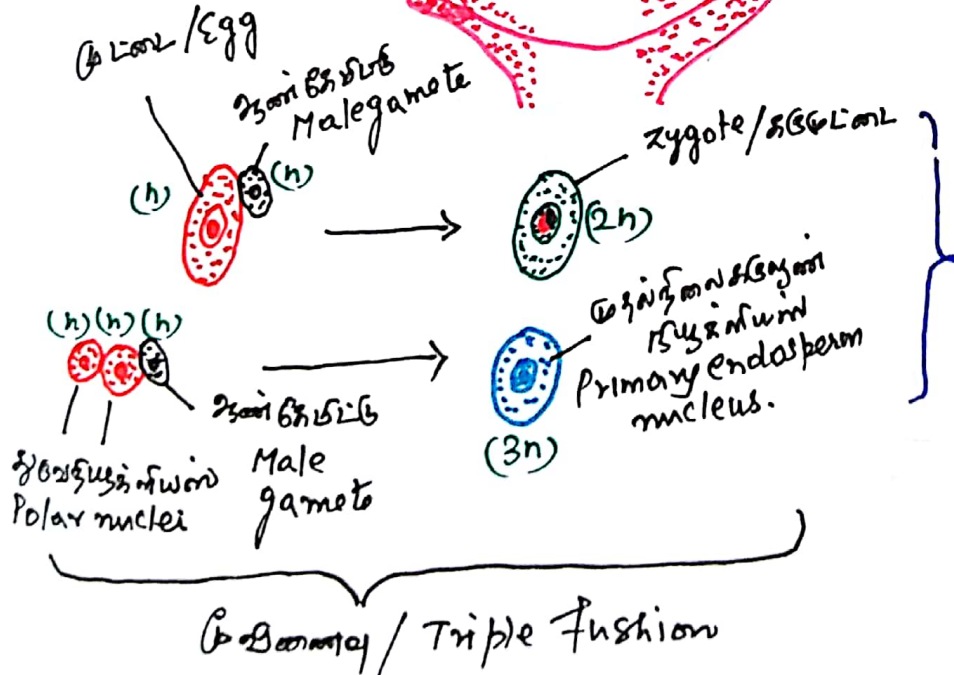 முட்டை / Egg
ஆண் கேமீட்
Male gamete
(n)
(n)
Zygote / கருமுட்டை
(2n)
(n) (n) (n)
முதல்நிலை கருவூண்
நியூக்ளியஸ்
Primary endosperm
nucleus.
(3n)
ஆண் கேமீட்டு
Male
gamete
துருவ நியூக்ளியஸ்
Polar nuclei
மூவிணைவு / Triple Fushion